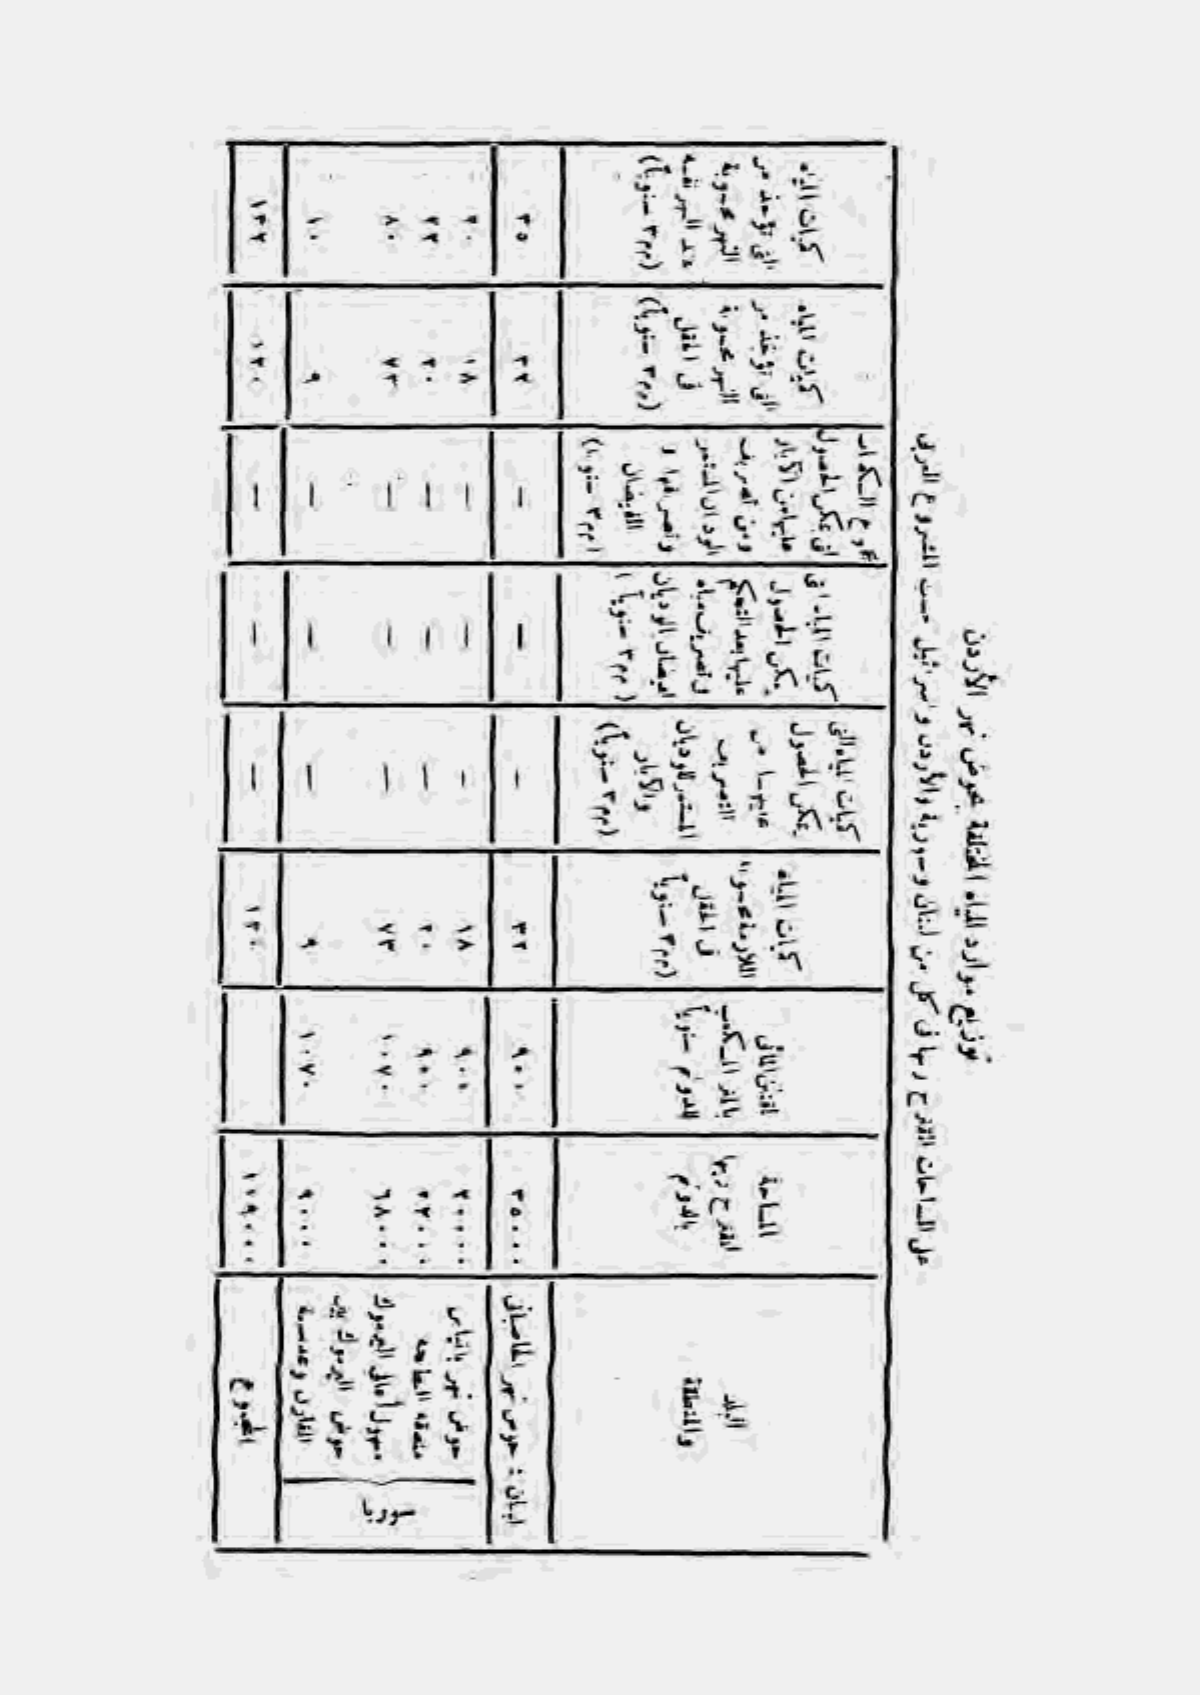 توزيع موارد المياه المختلفة بحوض نهر الأردن
على المساحات المقترح ريها في كل من لبنان وسورية والأردن واسرائيل حسب المشروع العربي
البلد
والمنطقة
المساحة
المقترح ريها
بالدونم
المقنن المائي
بالمتر المكعب
للدونم سنوياً
كميات المياه
اللازمة محسوبة
في الحقل
(مم٣ سنوياً)
كميات المياه التي
يمكن الحصول
عليها من
التصريف
المستمر للوديان
والآبار
(مم٣ سنوياً)
كميات المياه التي
يمكن الحصول
عليها بعد التحكم
في تصريف مياه
فيضان الوديان
(مم٣ سنوياً)
مجموع الكميات
التي يمكن الحصول
عليها من الآبار
ومن تصريف
الوديان المستمر
وتصرفها و
الفيضان
(مم٣ سنوياً)
كميات المياه
التي تؤخذ من
النهر محسوبة
في الحقل
(مم٣ سنوياً)
كميات المياه
التي تؤخذ من
النهر محسوبة
عند النهر نفسه
(مم٣ سنوياً)
لبنان : حوض نهر الحاصباني ٣٥٠٠٠ ٩٠٠ ٣٢ — — — ٣٢ ٣٥
سوريا
حوض نهر بانياس ٢٠٠٠٠ ٩٠٠ ١٨ — — — ١٨ ٢٠
منطقة البطيحة ٢٢٠٠٠ ٩٠٠ ٢٠ — — — ٢٠ ٢٢
سهول أعالي اليرموك ٦٨٠٠٠ ١٠٧٠ ٧٣ — — — ٧٣ ٨٠
حوض اليرموك بين
المقارن وعدسية ٩٠٠٠ ١٠٧٠ ٩ — — — ٩ ١٠
المجموع ١١٩٠٠٠ ١٢٠ — — — ١٢٠ ١٣٢